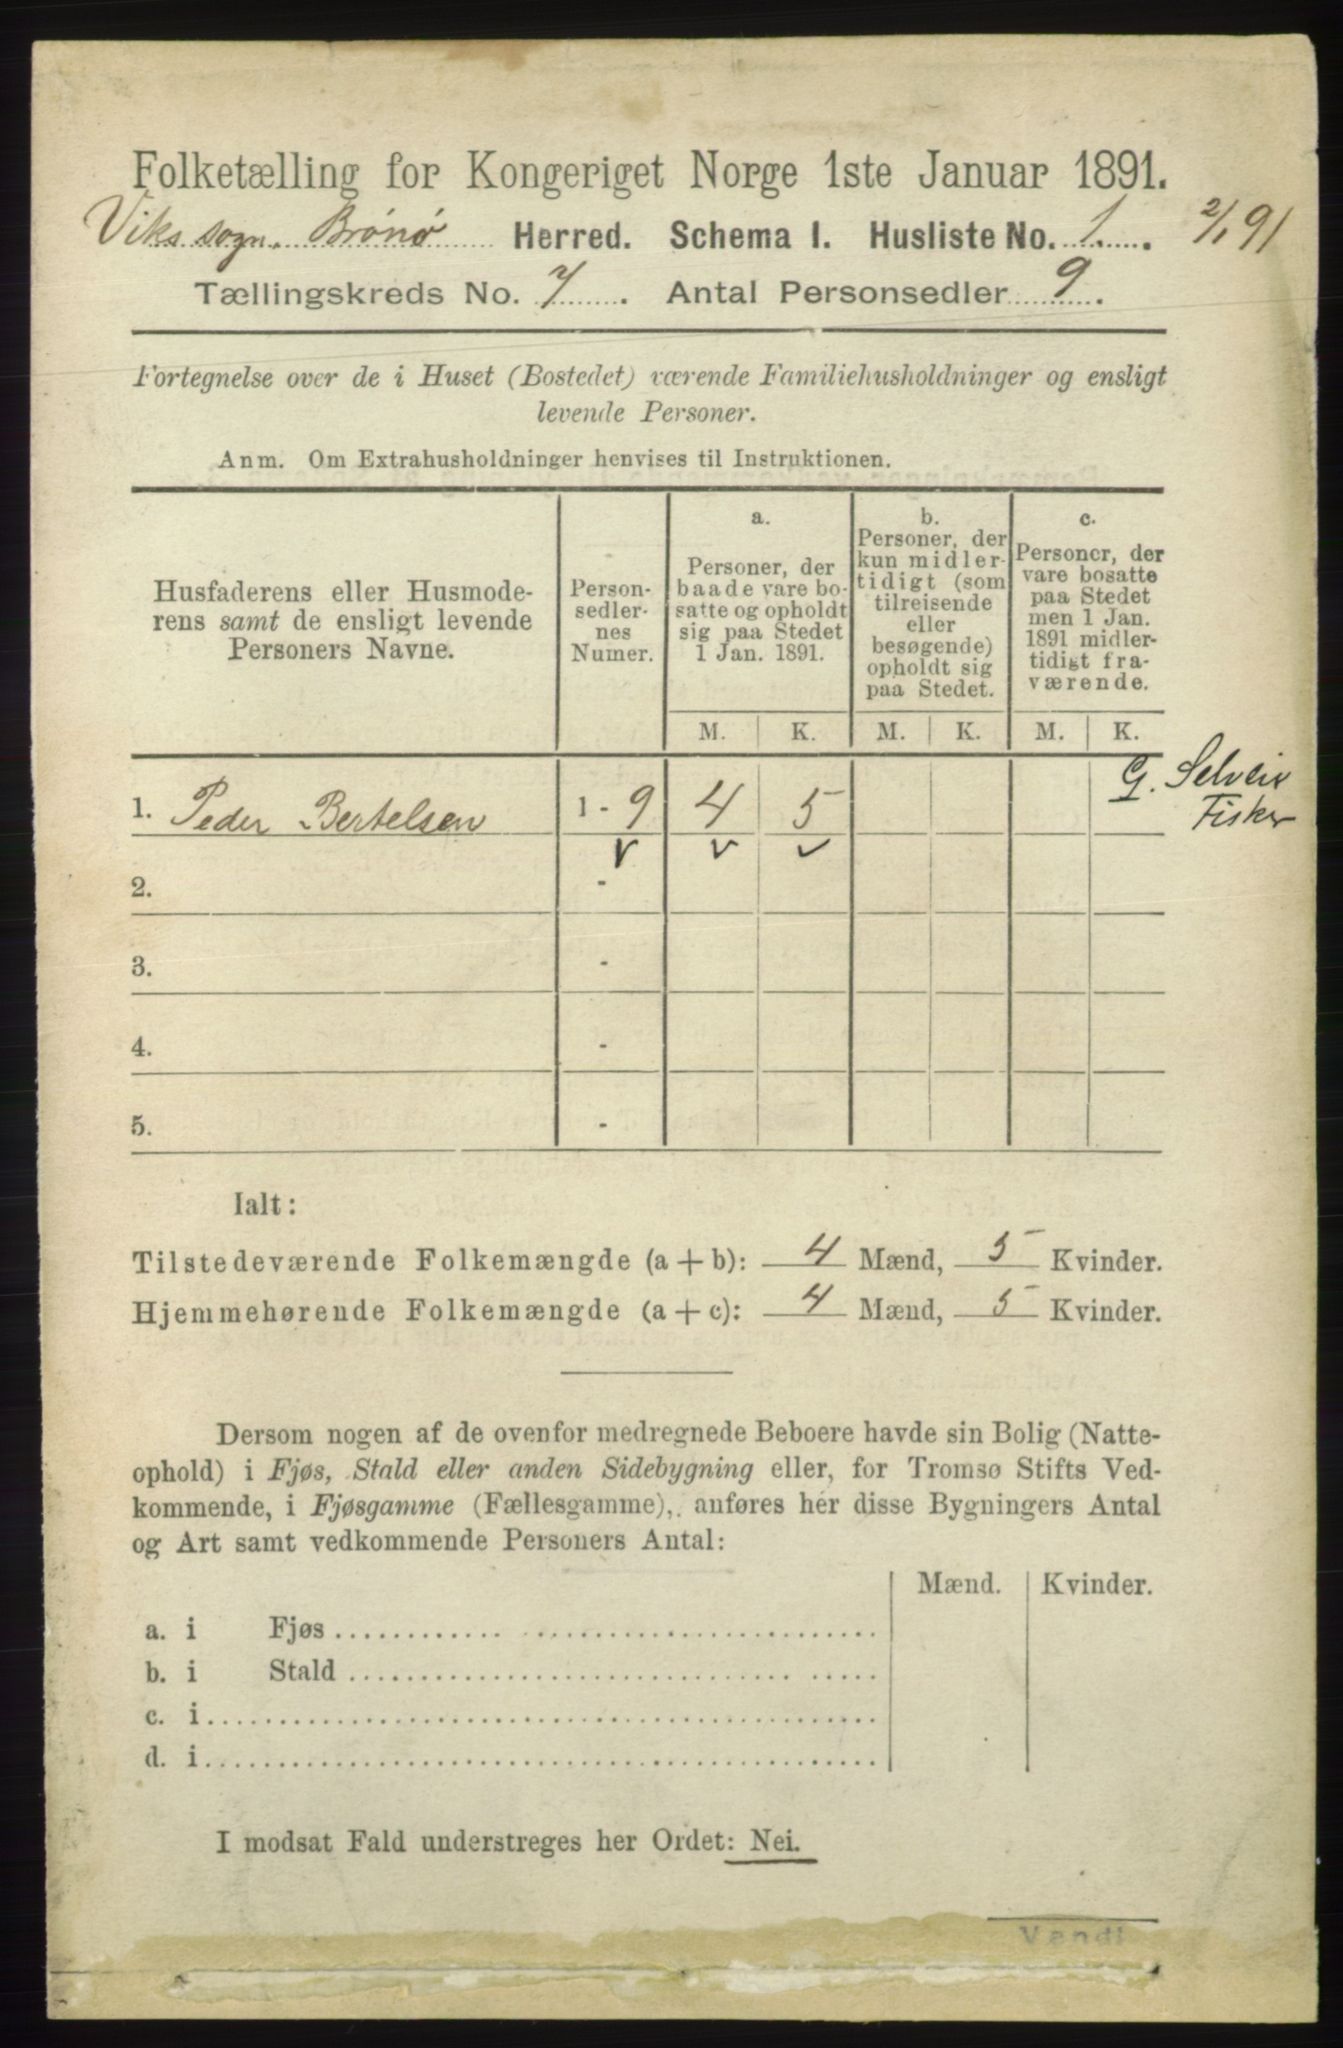 Folketælling for Kongeriget Norge 1ste Januar 1891.
Viks sogn. Brønø Herred. Schema I. Husliste No. 1. 2/1 91
Tællingskreds No. 7. Antal Personsedler 9.
Fortegnelse over de i Huset (Bostedet) værende Familiehusholdninger og ensligt
levende Personer.
Anm. Om Extrahusholdninger henvises til Instruktionen.
Husfaderens eller Husmode-
rens samt de ensligt levende
Personers Navne.
Person-
sedler-
nes
Numer.
a.
Personer, der
baade vare bo-
satte og opholdt
sig paa Stedet
1 Jan. 1891.
b.
Personer, der
kun midler-
tidigt (som
tilreisende
eller
besøgende)
opholdt sig
paa Stedet.
c.
Personer, der
vare bosatte
paa Stedet
men 1 Jan.
1891 midler-
tidigt fra-
værende.
M. K. M. K. M. K.
1. Peder Bertelsen 1 - 9 4 5 G. Selveir
Fisker
2. -
3. -
4. -
5. -
Ialt:
Tilstedeværende Folkemængde (a + b): 4 Mænd, 5 Kvinder.
Hjemmehørende Folkemængde (a + c): 4 Mænd, 5 Kvinder.
Dersom nogen af de ovenfor medregnede Beboere havde sin Bolig (Natte-
ophold) i Fjøs, Stald eller anden Sidebygning eller, for Tromsø Stifts Ved-
kommende, i Fjøsgamme (Fællesgamme), anføres her disse Bygningers Antal
og Art samt vedkommende Personers Antal:
Mænd. Kvinder.
a. i Fjøs
b. i Stald
c. i
d. i
I modsat Fald understreges her Ordet: Nei.
Vendi